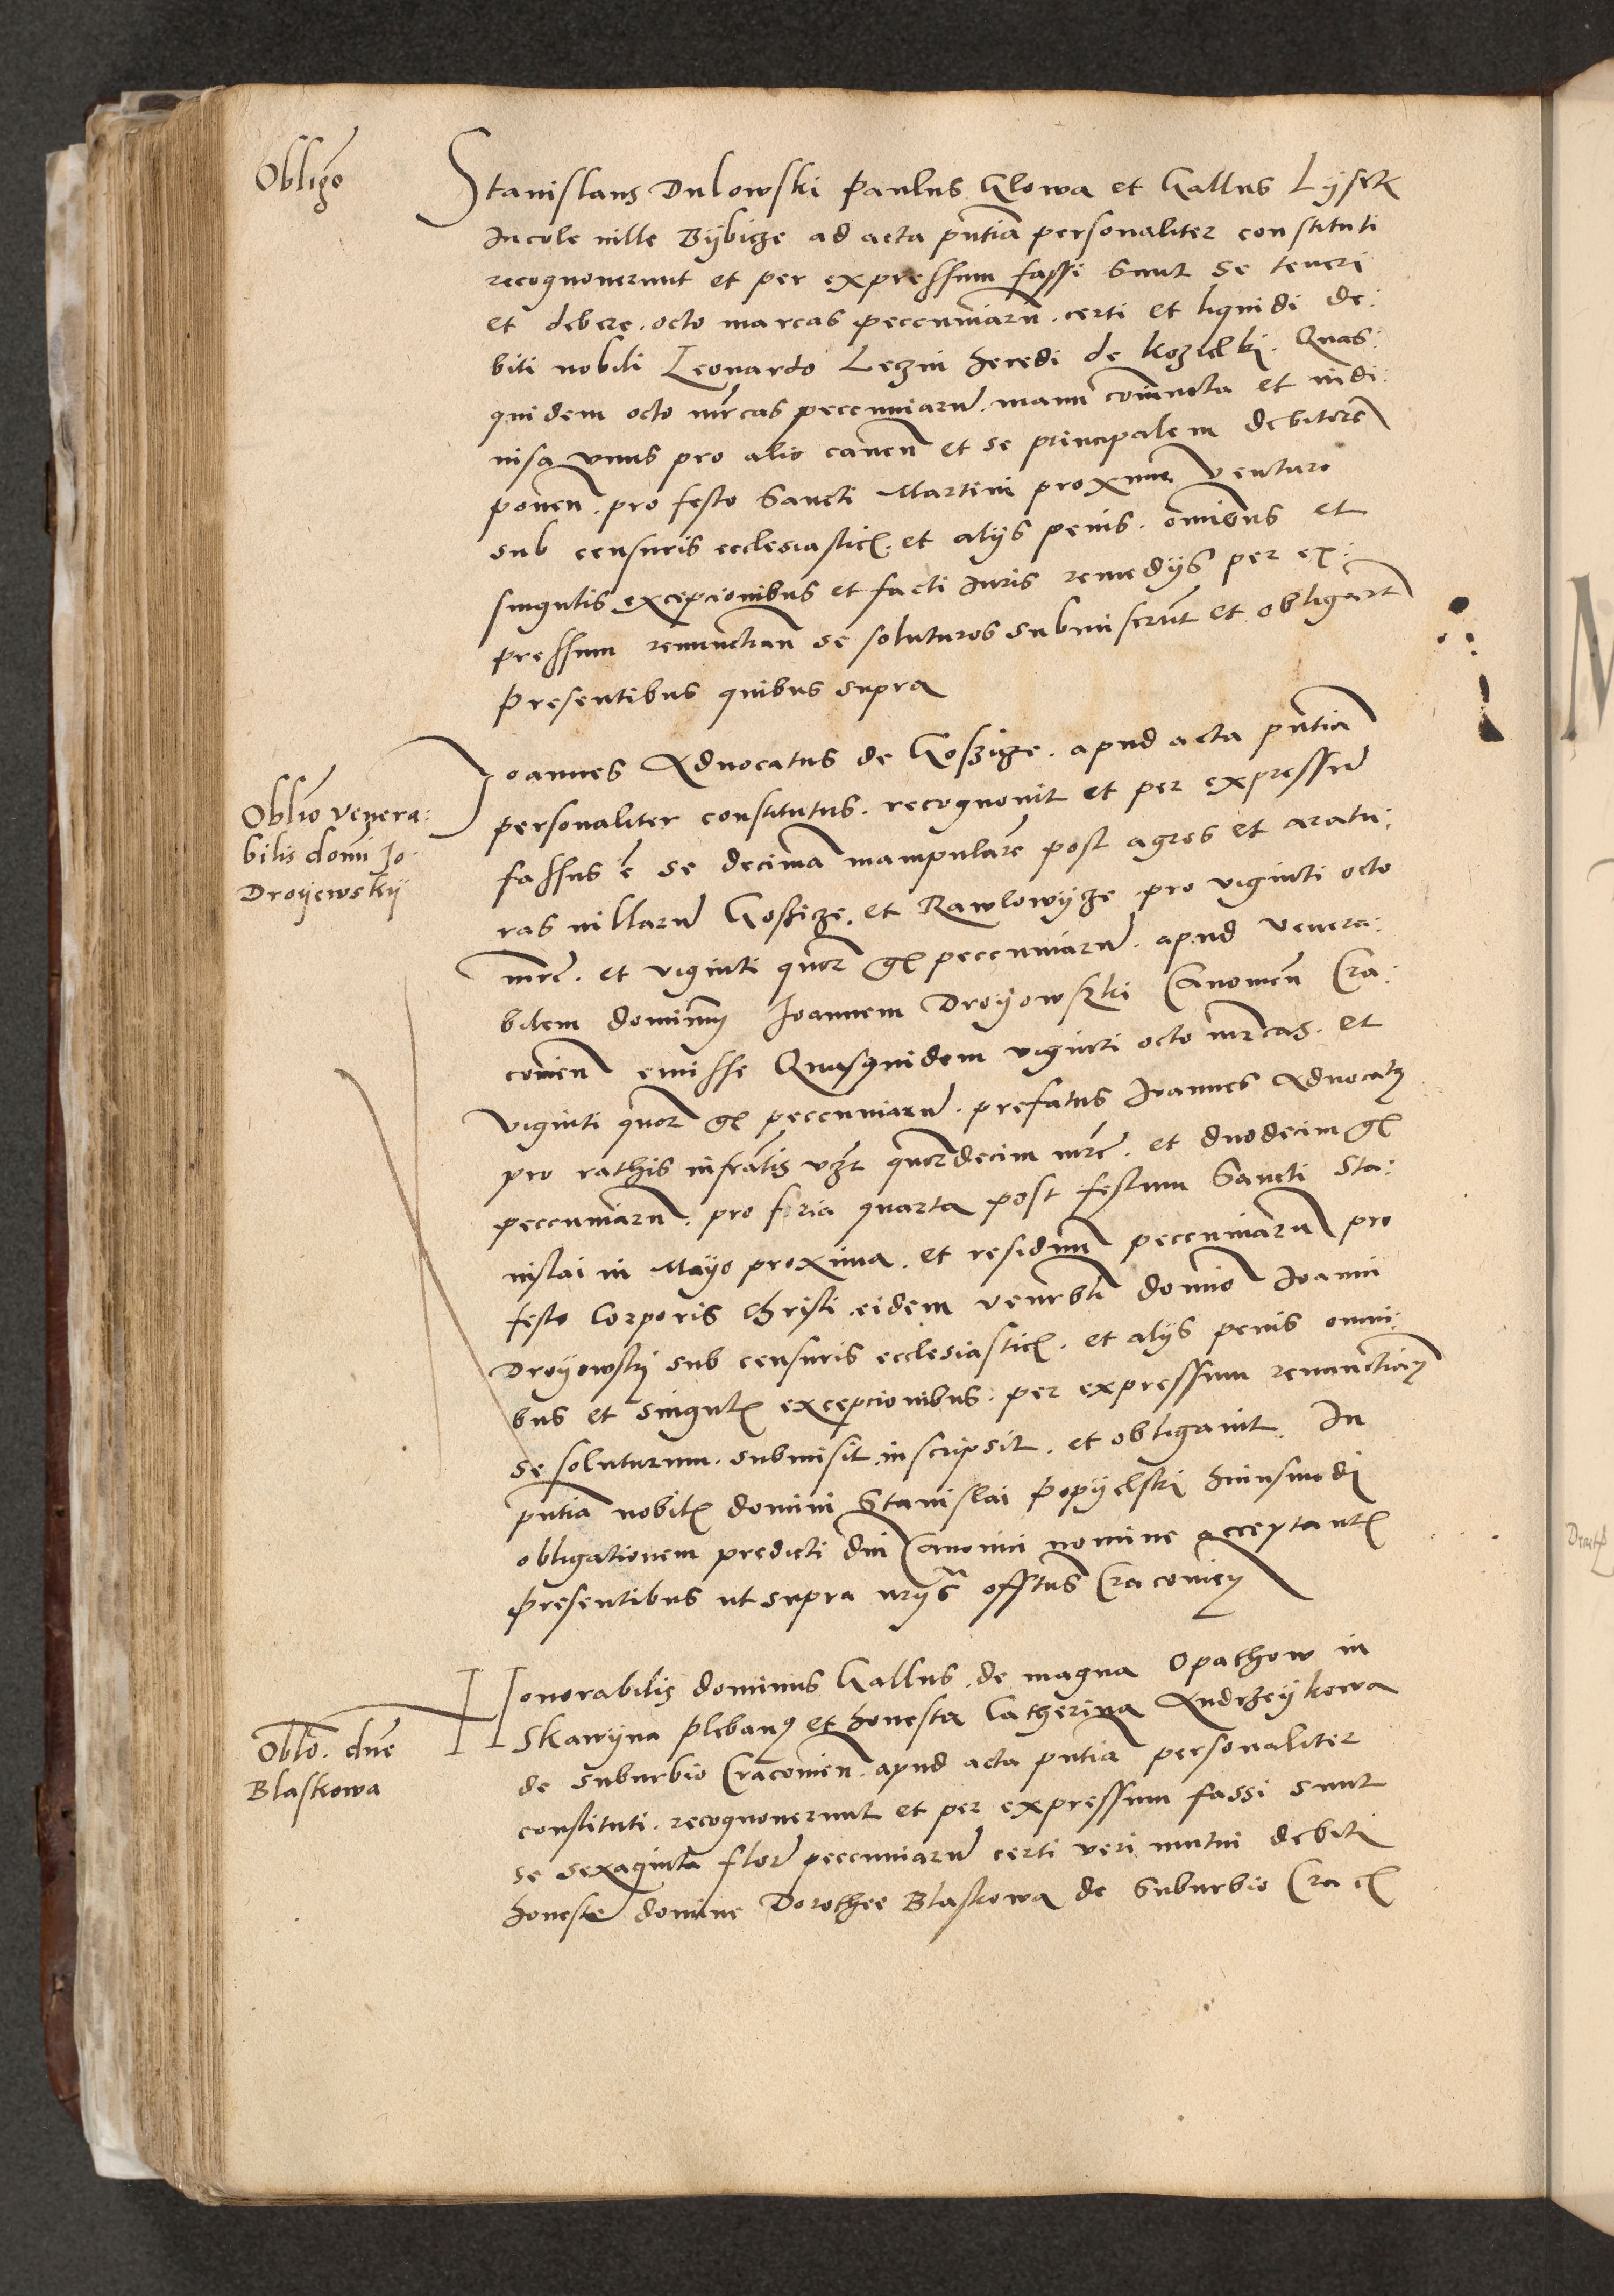 Obligō
Stanislaus Dulowski Paulus Glowa et Gallus Lysek
Incole ville Bÿbicze ad acta pñtia personaliter constituti
recognoverunt et per expressum fassi sunt se teneri
et debere. octo marcas peccuniarū. certi et liquidi de:
biti nobili Leonardo Leczin heredi de Kozielki. Quas:
quidem octo mrcas peccuniarū. manu coniuncta et indi:
visa unus pro alio caven et se principalem debitorē
ponen. pro festo Sancti Martini proximo venturo
sub censuris ecclesiastic. et alÿs penis. omibus et
singulis excepcionibus et facti Iuris remedÿs per ex:
pressum renunctian se soluturos submiserūt et obligarūt
presentibus quibus supra
Oblio venera:
bilis domi Jo.
Droyewskÿ
Joannes Advocatus de Goszicze. apud acta pñtia
personaliter constitutus. recognovit et per expressū
fassus ē se decima manipularē post agros et aratu:
ras villarū Goszicze. et Rawlowÿcze pro viginti octo
mrc. et viginti quor gl peccuniarū. apud venera:
bilem dominum Joannem Droÿowszki Canonicū Cra:
covien emisse Quasquidem viginti octo mrcas. et
viginti quor gl peccuniarū. prefatus Ioannes Advocatus
pro rathis infratis vzt quordecim mrc. et duodecim gl
peccuniarū. pro feria quarta post festum Sancti Sta:
nislai in Mayo proxima. et residuū peccuniarū pro
festo Corporis Christi eidem venrbli domio Ioanni
Droÿowski sub censuris ecclesiastic. et alÿs penis omni:
bus et singul excepcionibus. per expressum renunctian
se soluturum. submisit inscripsit. et obligavit. In
pñtia nobil domini Stanislai Popÿelski huiusmodi
obligationem predicti dni Canonici nomine acceptant
Presentibus ut supra nrÿs offtus Cracovien
Oblō. dne
Blaskowa
Honorabilis dominus Gallus de magna Opathow in
Skawÿna plebanus et honesta Catherina Andrzeÿkowa
de suburbio Cracovien. apud acta pñtia personaliter
constituti. recognoverunt et per expressum fassi sunt
se sexaginta flor peccuniarū certi veri mutui debiti
honeste domine Dorothee Blaskowa de Suburbio Crac